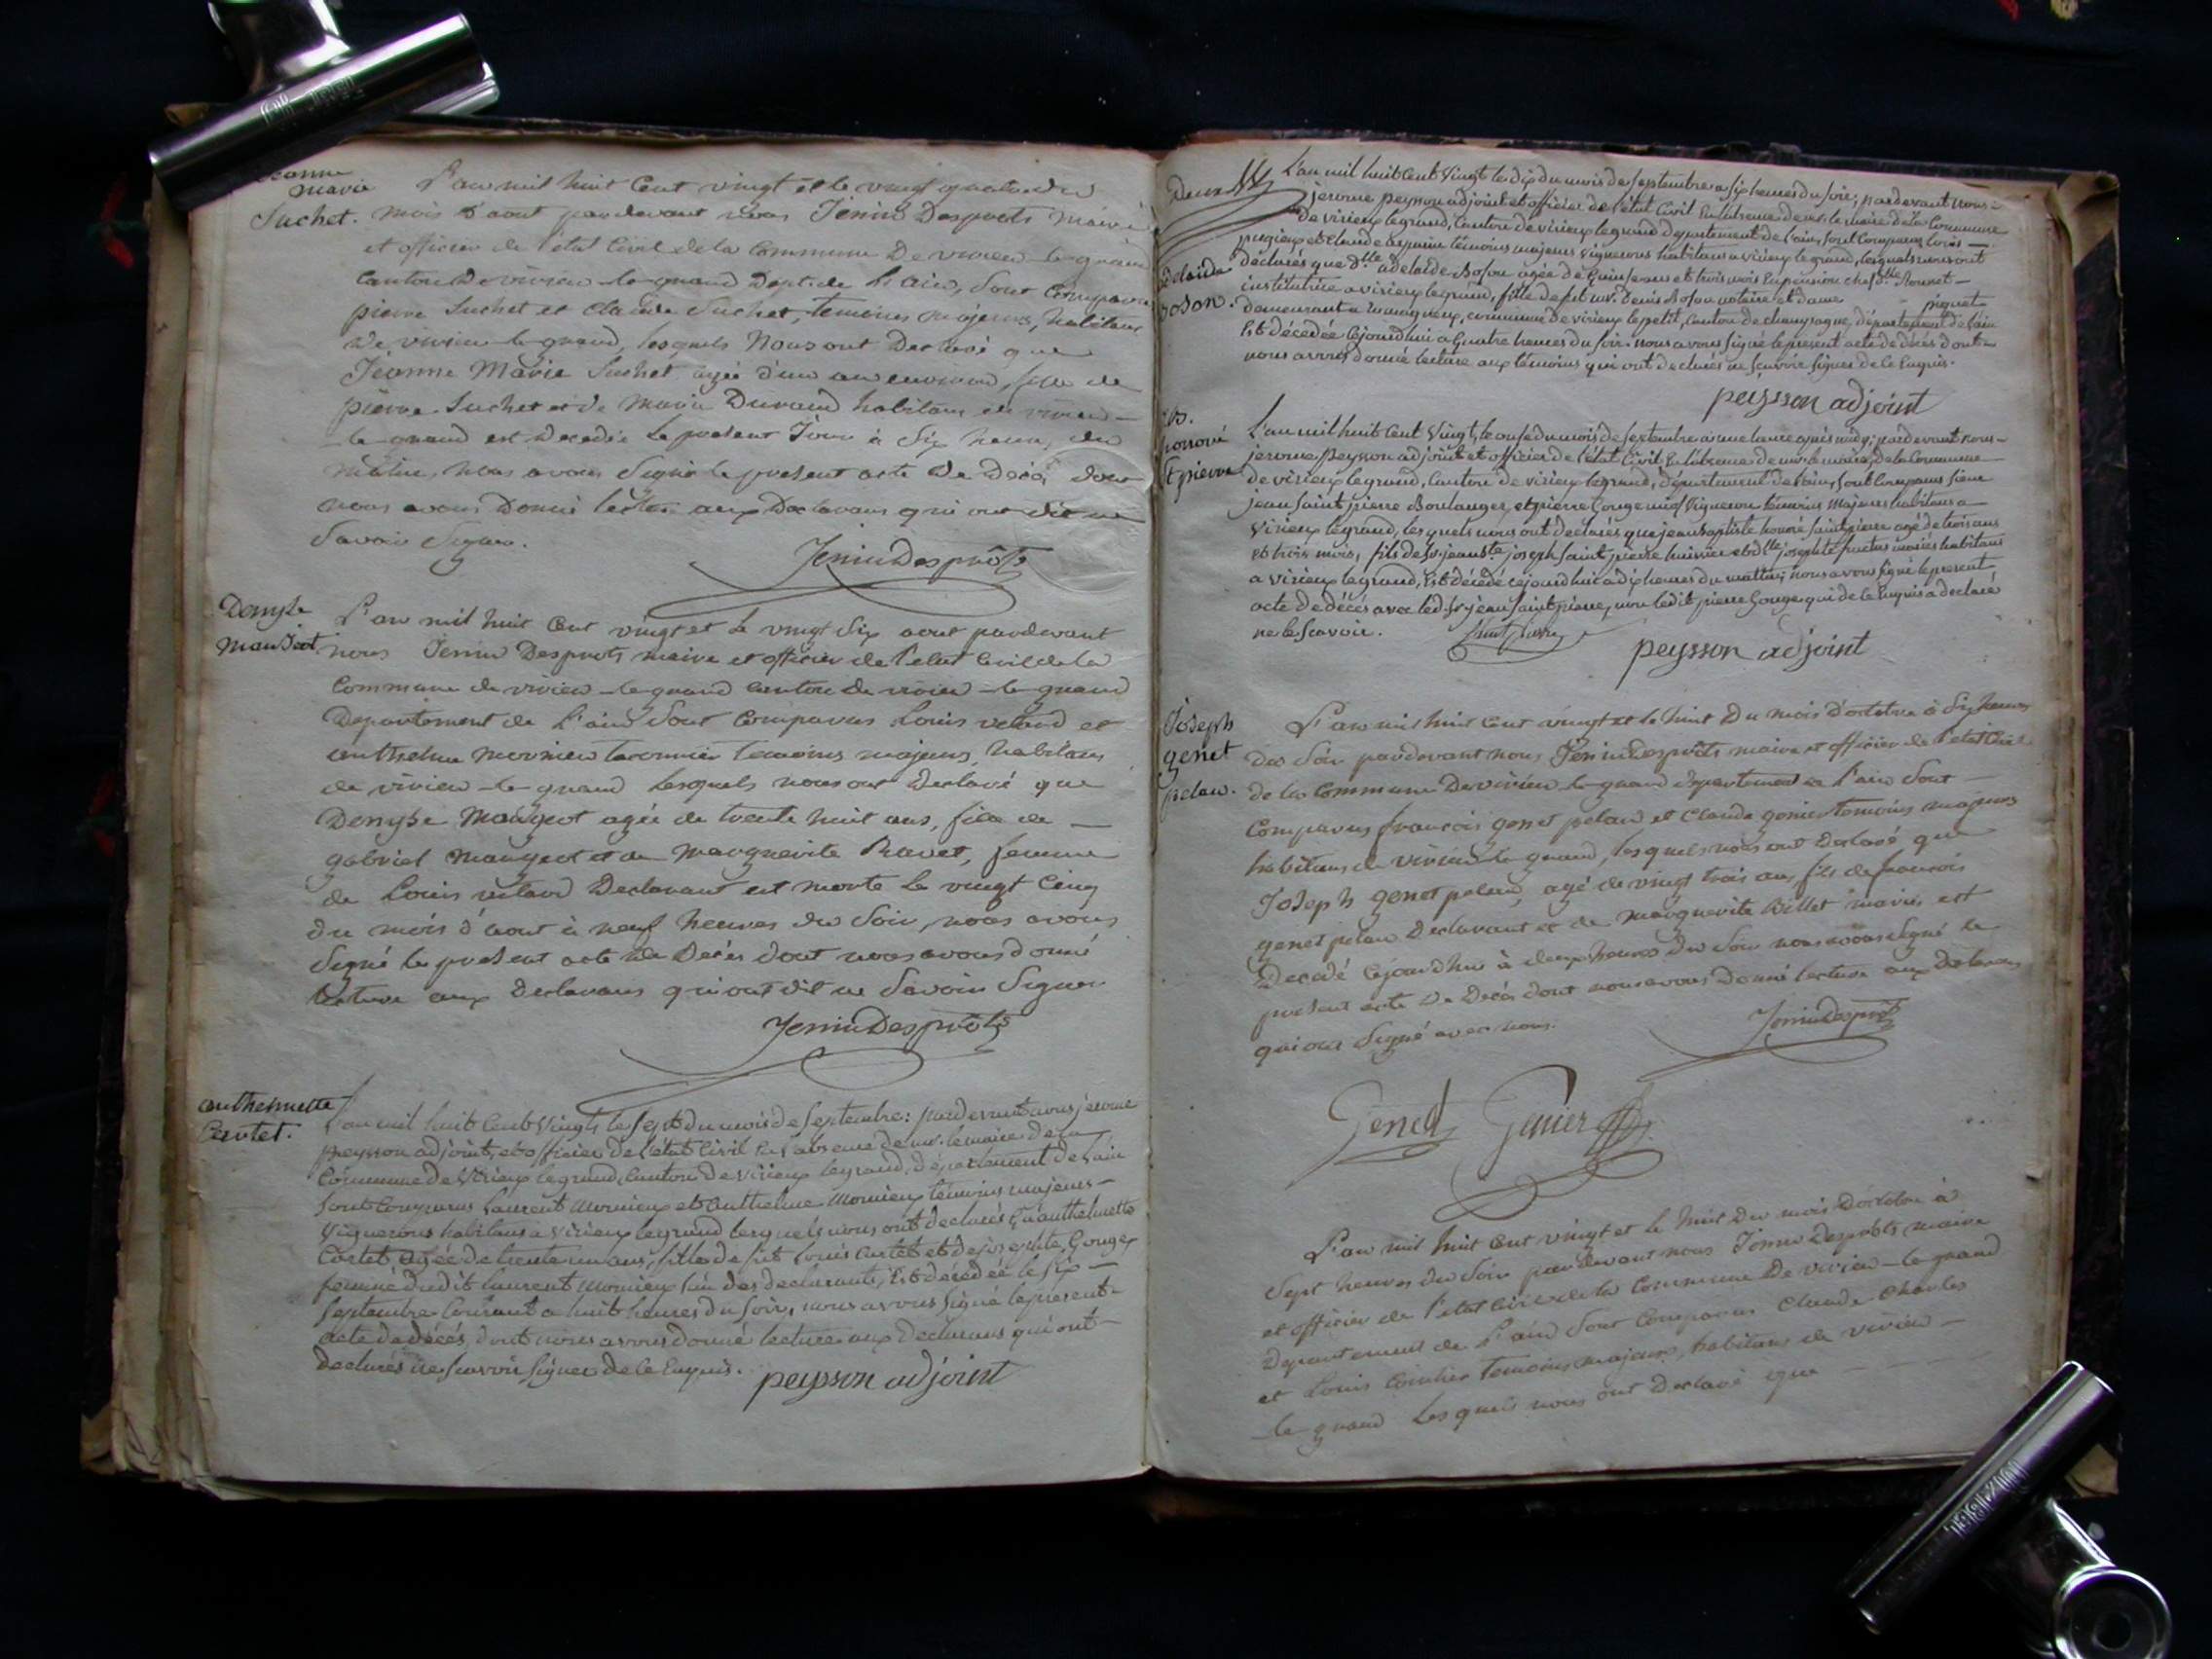 Jeanne
Marie
Suchet.
L'an mil huit Cent vingt et le vingt quatre du
mois d'aout pardevant nous Jenin Desprots maire
et officier de l'état Civil de la Commune De virieu le grand
Canton De virieu le grand Dept. de L'ain, Sont Comparus
pierre Suchet et Claude Suchet, temoins majeurs, habitans
De virieu le grand, lesquels Nous ont Declaré que
Jeanne Marie Suchet agée d'un an environ, fille de
pierre Suchet et de Marie Durand habitans de virieu
le grand est Decedée le present Jour à Six heures du
matin, nous avons Signé le present acte De Decès dont
nous avons Donné lecture aux Declarans qui ont dit ne
Savoir Signer.
Jenin Desprots
Denyse
Maujeot
L'an mil huit Cent vingt et le vingt Six aout pardevant
nous Jenin Desprots maire et officier de l'etat Civil de la
Commune de virieu le grand canton de virieu le grand
Departement de L'ain Sont Comparus Louis et
anthelme temoins majeurs, habitans
de virieu le grand Lesquels nous ont Declaré que
Denyse Maujeot agée de trente huit ans, fille de
gabriel Maujeot et de Marguerite Ravet, femme
de Louis Declarant est morte le vingt Cinq
du mois d'aout à neuf heures du Soir, nous avons
Signé le present acte de Decès dont nous avons donné
lecture aux declarans qui ont dit ne Savoir Signer
Jenin Desprots
anthelmette
Certet.
L'an mil huit Cent Vingt, le sept du mois de Septembre: pardevant nous jerome
peysson adjoint, et officier de l'état Civil En l'absence de mr. le maire de la
Commune de Virieux le grand, Canton de Virieux le grand, département de l'ain
sont Comparus Laurent Monnieux et anthelme Monnieux témoins majeurs
Vignerons habitans a Virieux le grand lesquels nous ont declarés qu'anthelmette
Certet agée de trente un ans, fille de fut Louis Certet et de josephte Gouges
femme dudit laurent Monnieux l'un des declarants, Est décédée le six
Septembre Courant a huit heures du soir, nous avons signé le présent
acte de décés, dont nous avons donné lecture aux Declarans qui ont
declarés ne scavoir signer de ce Enquis.
peysson adjoint
L'an mil huit Cent Vingt le dix du mois de septembre a six heures du soir; pardevant nous
jerome peysson adjoint et officier de l'état Civil En l'absence de mr. le maire de la Commune
de virieux le grand, Canton de virieux le grand département de l'ain, sont Comparus Louis
pugieux et Claude témoins majeurs vignerons habitans a virieux le grand, lesquels nous ont
adelaide
Boson.
déclarés que dlle adelaide Boson agée de quinze ans et trois mois En pension chés dlle Bonnet
institutrice a virieux le grand, fille de fut mr. Denis Boson notaire et dame piquet
demeurant a commune de virieux le petit, Canton de champagne, département de l'ain
Est décédée cejourd'hui a quatre heures du soir. nous avons signé le present acte de décès dont
nous avons donné lecture aux témoins qui ont declarés ne scavoir signer de ce Enquis.
peysson adjoint
honoré
St pierre
L'an mil huit Cent Vingt, le onze du mois de septembre a une heure après midy; pardevant nous
jerome peysson adjoint et officier de l'état Civil En l'absence de mr. le maire, de la Commune
de virieux le grand, Canton de virieux le grand, département de l'ain, sont Comparus sieur
jean saint pierre Boulanger et pierre Gouge Vigneron témoins majeurs habitans a
Virieux le grand, lesquels nous ont declarés que jean Baptiste honoré saint pierre agé de trois ans
et trois mois, fils de sr. jean Bte joseph saint pierre huissier et dlle josephte mariés habitans
a virieux le grand, Est décédé cejourd'hui a dix heures du mattin; nous avons signé le present
acte de décès avec led. sr. jean saint pierre, non ledit pierre Gouge qui de ce Enquis a declaré
ne le scavoir.
Saint pierre
peysson adjoint
Joseph
genet
pelan.
L'an mil huit Cent vingt et le huit Du mois d'octobre à Six heures
du Soir pardevant nous, Jenin Desprots maire et officier de l'etat Civil
de la Commune De virieu le grand departement de l'ain Sont
Comparus françois genet pelan et Claude genier temoins majeurs
habitans de virieu le grand, lesquels nous ont Declaré que
Joseph genet pelan, agé de vingt trois ans, fils de françois
genet pelan Declarant et de Marguerite Billet mariés, est
Decedé cejourd'hui à deux heures du Soir nous avons Signé le
present acte De Decès dont nous avons Donné lecture aux Declarans
qui ont Signé avec nous.
Jenin Desprots
Genet Genier
L'an mil huit Cent vingt et le huit Du mois D'octobre à
Sept heures du Soir pardevant nous Jenin Desprots maire
et officier de l'etat Civil de la Commune De virieu le grand
Departement de L'ain Sont Comparus Claude Charles
et Louis temoins majeurs, habitans de virieu
le grand Lesquels nous ont Declaré que